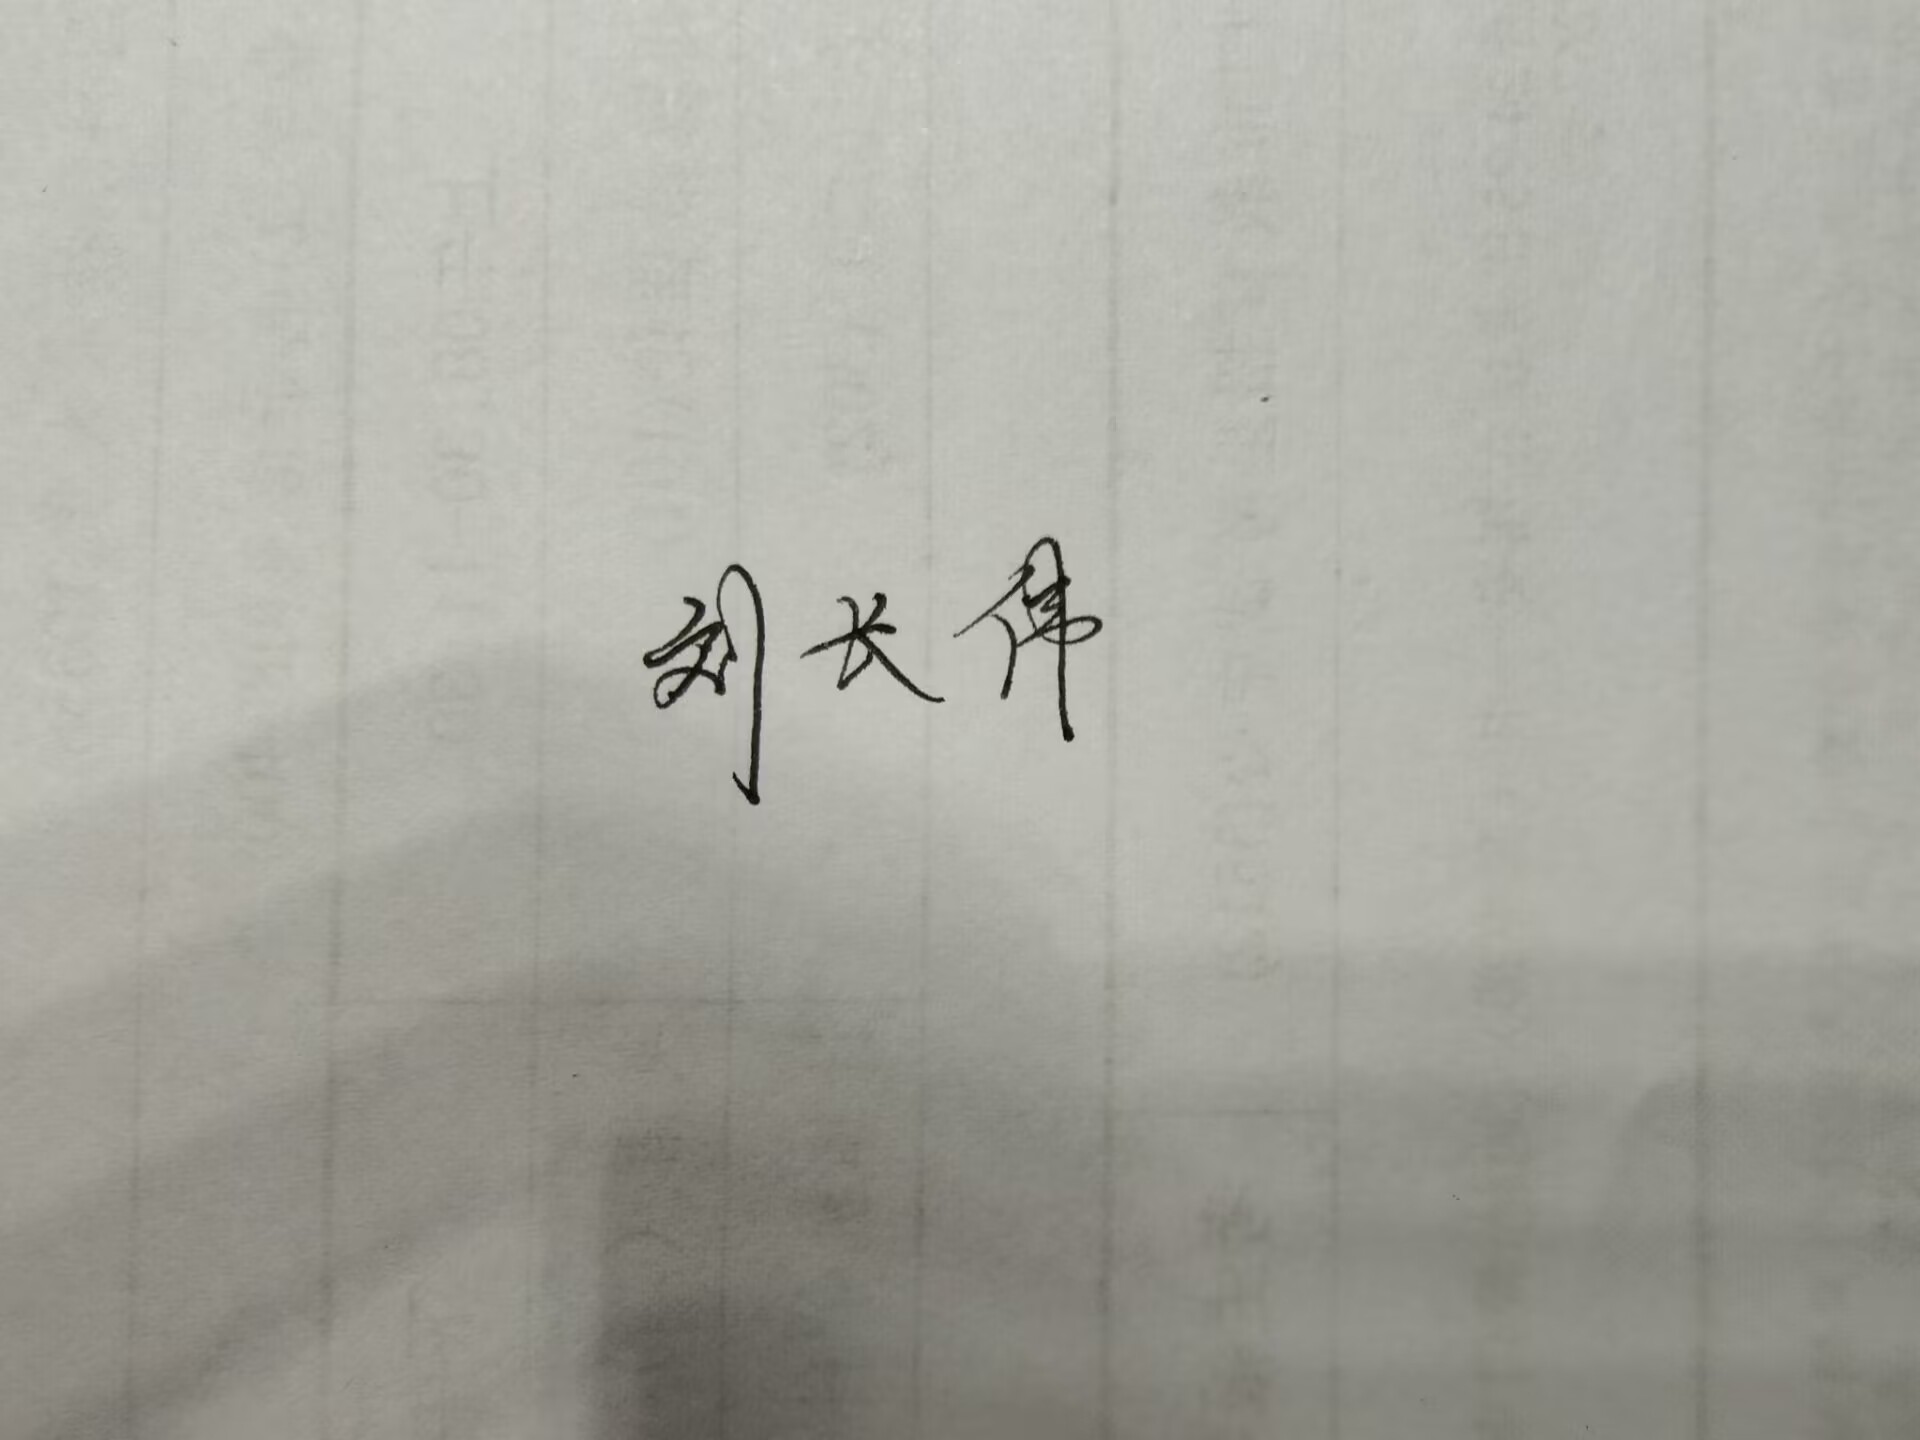 刘长伟